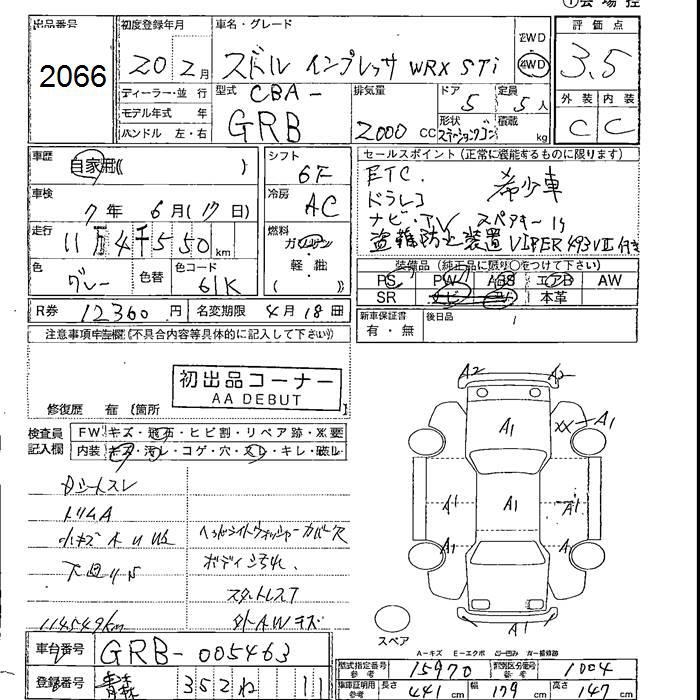 ①会場控
出品番号
2066
初度登録年月
20 2月
車名・グレード
スバル インプレッサ WRX STi
2WD
4WD
評価点
3.5
外装 内装
C C
ディーラー・並 行
モデル年式 年
ハンドル 左・右
型式
CBA-
GRB
排気量
2000 CC
ドア 5
定員 5人
形状 ステーションワゴン
積載 kg
車歴
自家用( )
車検
7年 6月(17日)
走行
11万4千550km
色
グレー
色替
色コード
61K
シフト
6F
冷房
AC
燃料
ガソリン
軽・他
( )
セールスポイント(正常に機能するものに限ります)
ETC.
ドラレコ 希少車
ナビ・TV スペアキー1ヶ
盗難防止装置 VIPER 493VⅡ付き
装備品(純正品に限り○をつけて下さい)
PS PW ABS エアB AW
SR ナビ TV 本革
R券 12360円
名変期限 4月18日
新車保証書
有・無
後日品
注意事項申告欄(不具合内容等具体的に記入して下さい)
初出品コーナー
AA DEBUT
修復歴 有 〔箇所 〕
検査員
記入欄
FW キズ・飛石・ヒビ割・リペア跡・X要
内装 キズ・汚レ・コゲ・穴・スレ・キレ・破ル
Dシートスレ
トリムA
小キズ
下回りS
114549km
ヘッドライトウォッシャーカバー欠
ボディ汚れ.
スタットレスT
外AWキズ
A2
A1
XX A1
A1
A1
A1
A1
A1
A1
A1
スペア
A-キズ E-エクボ
車台番号
GRB-005463
登録番号
青森 352ね 11
型式指定番号 参考
15970
類別区分番号 参考
1004
車庫証明用 参考
長さ 441cm 幅 179cm 高さ 147cm